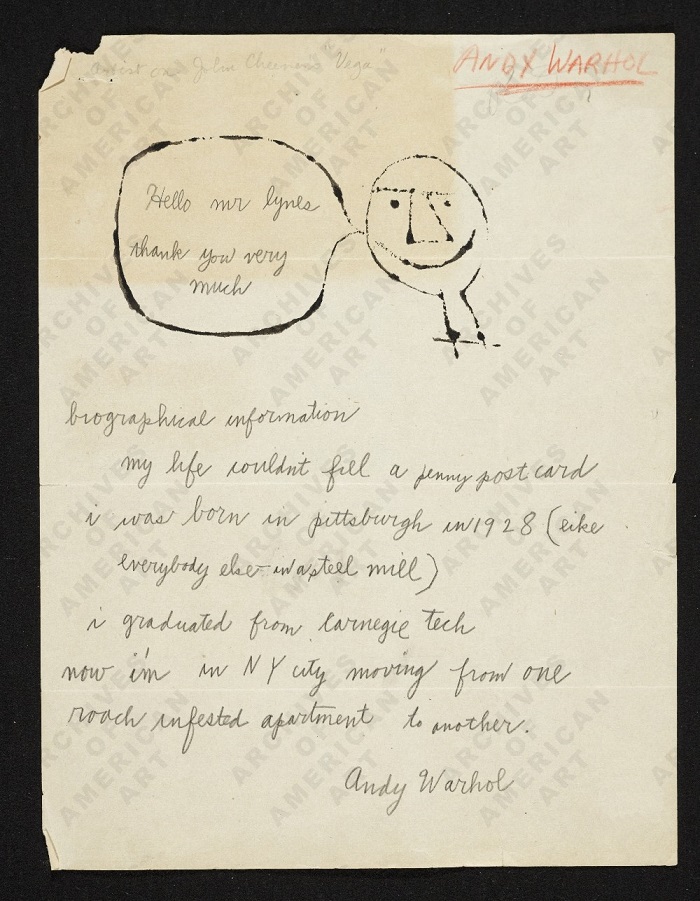 artist on John Cheever's "Vega"
ANDY WARHOL
Hello mr lynes
thank you very
much
biographical information
my life couldn't fill a penny post card
i was born in pittsburgh in 1928 (like
everybody else - in a steel mill)
i graduated from Carnegie tech
now i'm in NY city moving from one
roach infested apartment to another.
Andy Warhol
ARCHIVES
OF
AMERICAN
ART